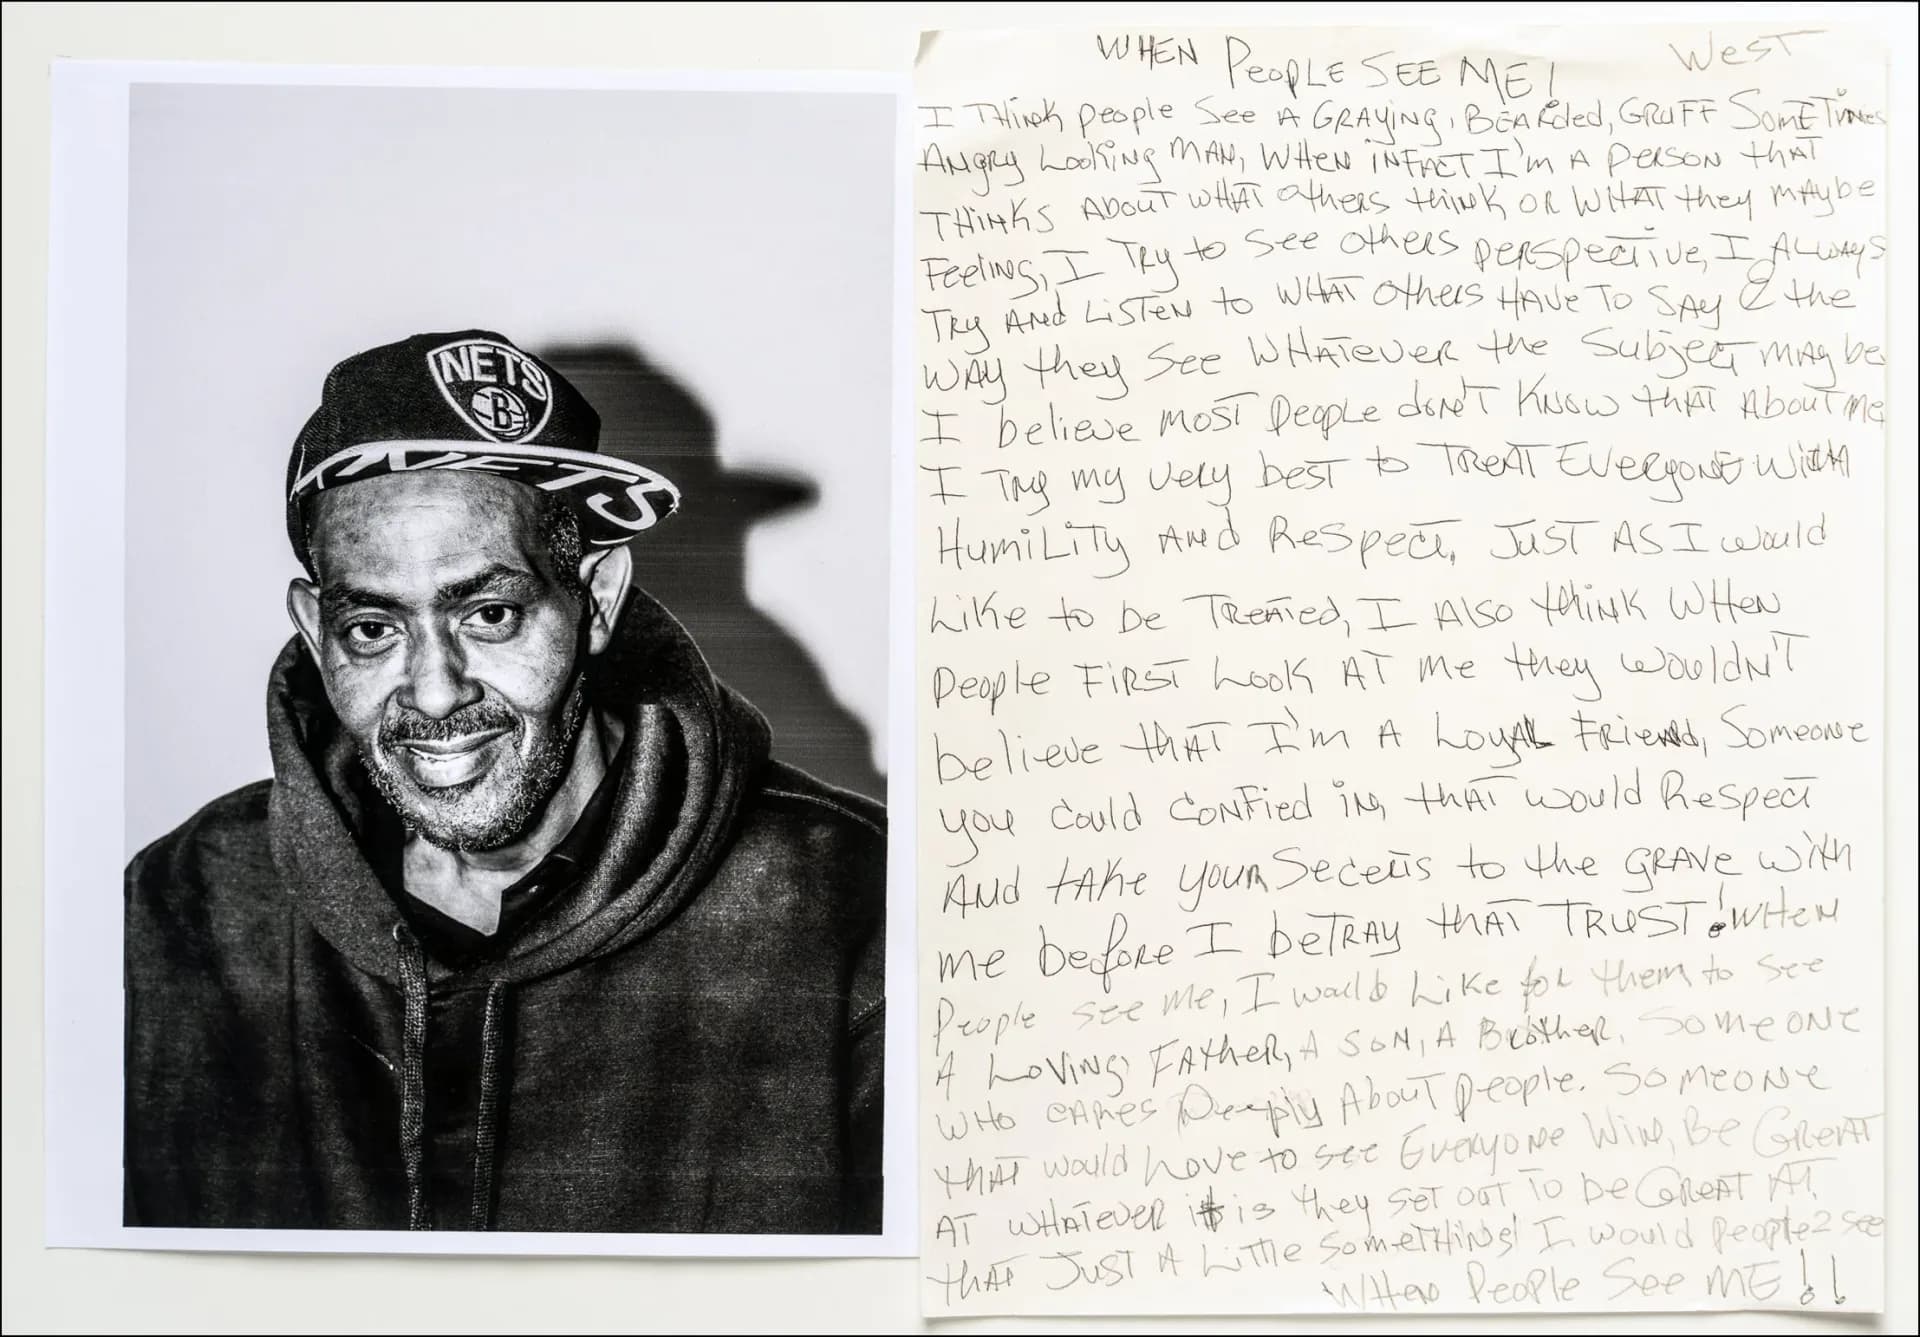 NETS
B
NETS
WHEN PEOPLE SEE ME! West
I THink people See A GRAYing, BEARded, GRUFF SomETimes
ANgRy Looking MAN, WHEN inFACT I'm A PERSON thAT
THinks ABouT wHAT others think OR WHAT they mAybe
Feeling, I TRy to See others perspective, I Always
TRy ANd LiSTEN to WHAT others HAve To SAy & the
WAy they See WHATeveR the Subject mAy be
I believe mosT people don't Know thAT AbouT me
I TRy my very besT to TReAT EveRyone WiTH
HumiLiTy ANd Respect, JusT AS I would
Like to be TReATed, I Also think WHen
people FiRST Look AT me they wouldn'T
believe thAT I'm A LoyAL FRiend, Someone
you could conFied in, thAT would Respect
ANd tAke youR Secerts to the gRAve with
me before I beTRAy thAT TRUST! WHen
People see me, I would Like foR them to see
A Loving FATheR, A SON, A BRotheR, SomeONE
WHO cARes Deeply AbouT people. SomeoNe
thAT would Love to see EveRyoNe WiN, Be GReAT
AT WHATeveR it is they SeT ouT To be GReAT AT,
thAT JusT A LiTTle SomeTHing! I would people 2 see
WHen People See ME!!